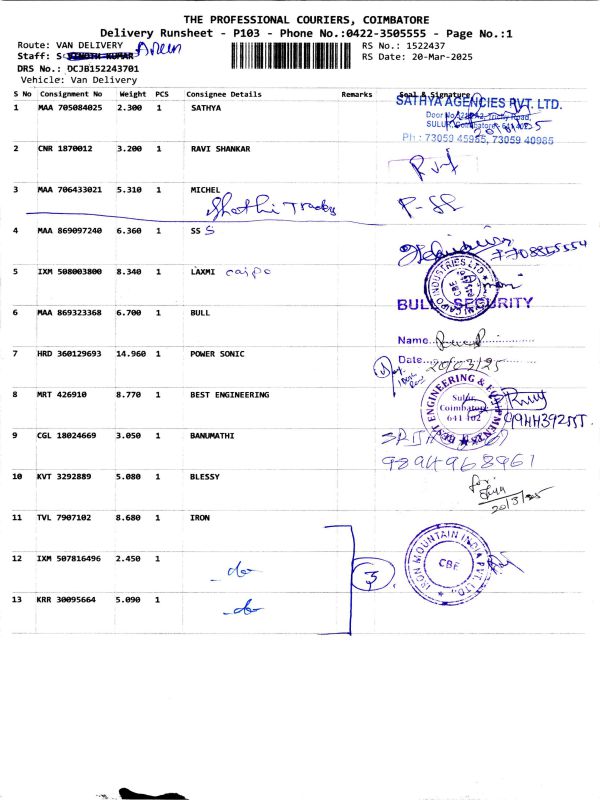 THE PROFESSIONAL COURIERS, COIMBATORE
Delivery Runsheet - P103 - Phone No.:0422-3505555 - Page No.:1
Route: VAN DELIVERY
RS No.: 1522437
Staff:
RS Date: 20-Mar-2025
DRS No.: OCJB152243701
Vehicle: Van Delivery
S No Consignment No Weight PCS Consignee Details Remarks Seal & Signature
1 MAA 705084025 2.300 1 SATHYA
SATHYA AGENCIES PVT. LTD.
Ph : 73059 45955, 73059 40985
2 CNR 1870012 3.200 1 RAVI SHANKAR
3 MAA 706433021 5.310 1 MICHEL
Shathi Traders
4 MAA 869097240 6.360 1 SS S
5 IXM 508003800 8.340 1 LAXMI caipo
6 MAA 869323368 6.700 1 BULL
BULL SECURITY
Name
7 HRD 360129693 14.960 1 POWER SONIC
Date 20/03/25
8 MRT 426910 8.770 1 BEST ENGINEERING
BEST ENGINEERING & EQUIPMENTS
Sulur
Coimbatore
641 402
9 CGL 18024669 3.050 1 BANUMATHI
9894968961
10 KVT 3292889 5.080 1 BLESSY
for
20/3/25
11 TVL 7907102 8.680 1 IRON
IRON MOUNTAIN INDIA PVT. LTD.
CBE
12 IXM 507816496 2.450 1 -do-
3
13 KRR 30095664 5.090 1 -do-